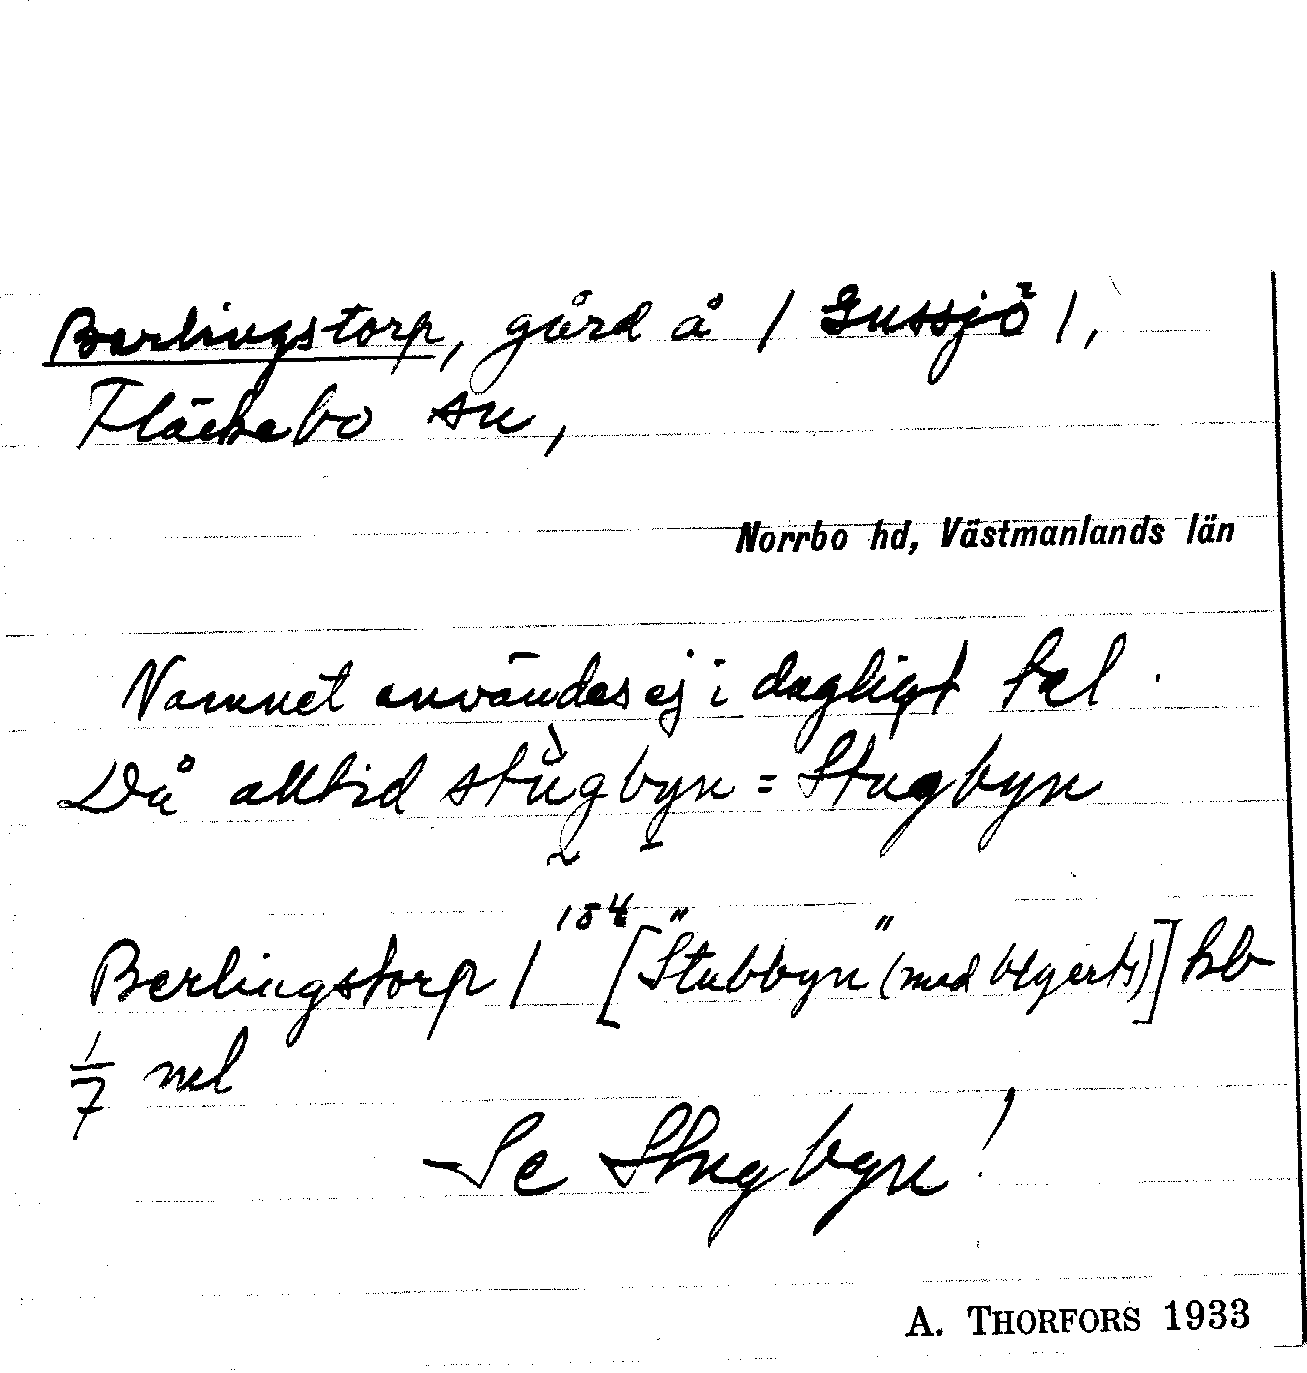 Berlingstorp, gård å / Gussjö /,
Fläckebo sn,
Norrbo hd, Västmanlands län
Namnet användes ej i dagligt tal.
Då alltid stùgbyn = Stugbyn
Berlingstorp / 184 ["Stubbyn" (med Algerts)] kb
1/7 ml
Se Stugbyn!
A. THORFORS 1933